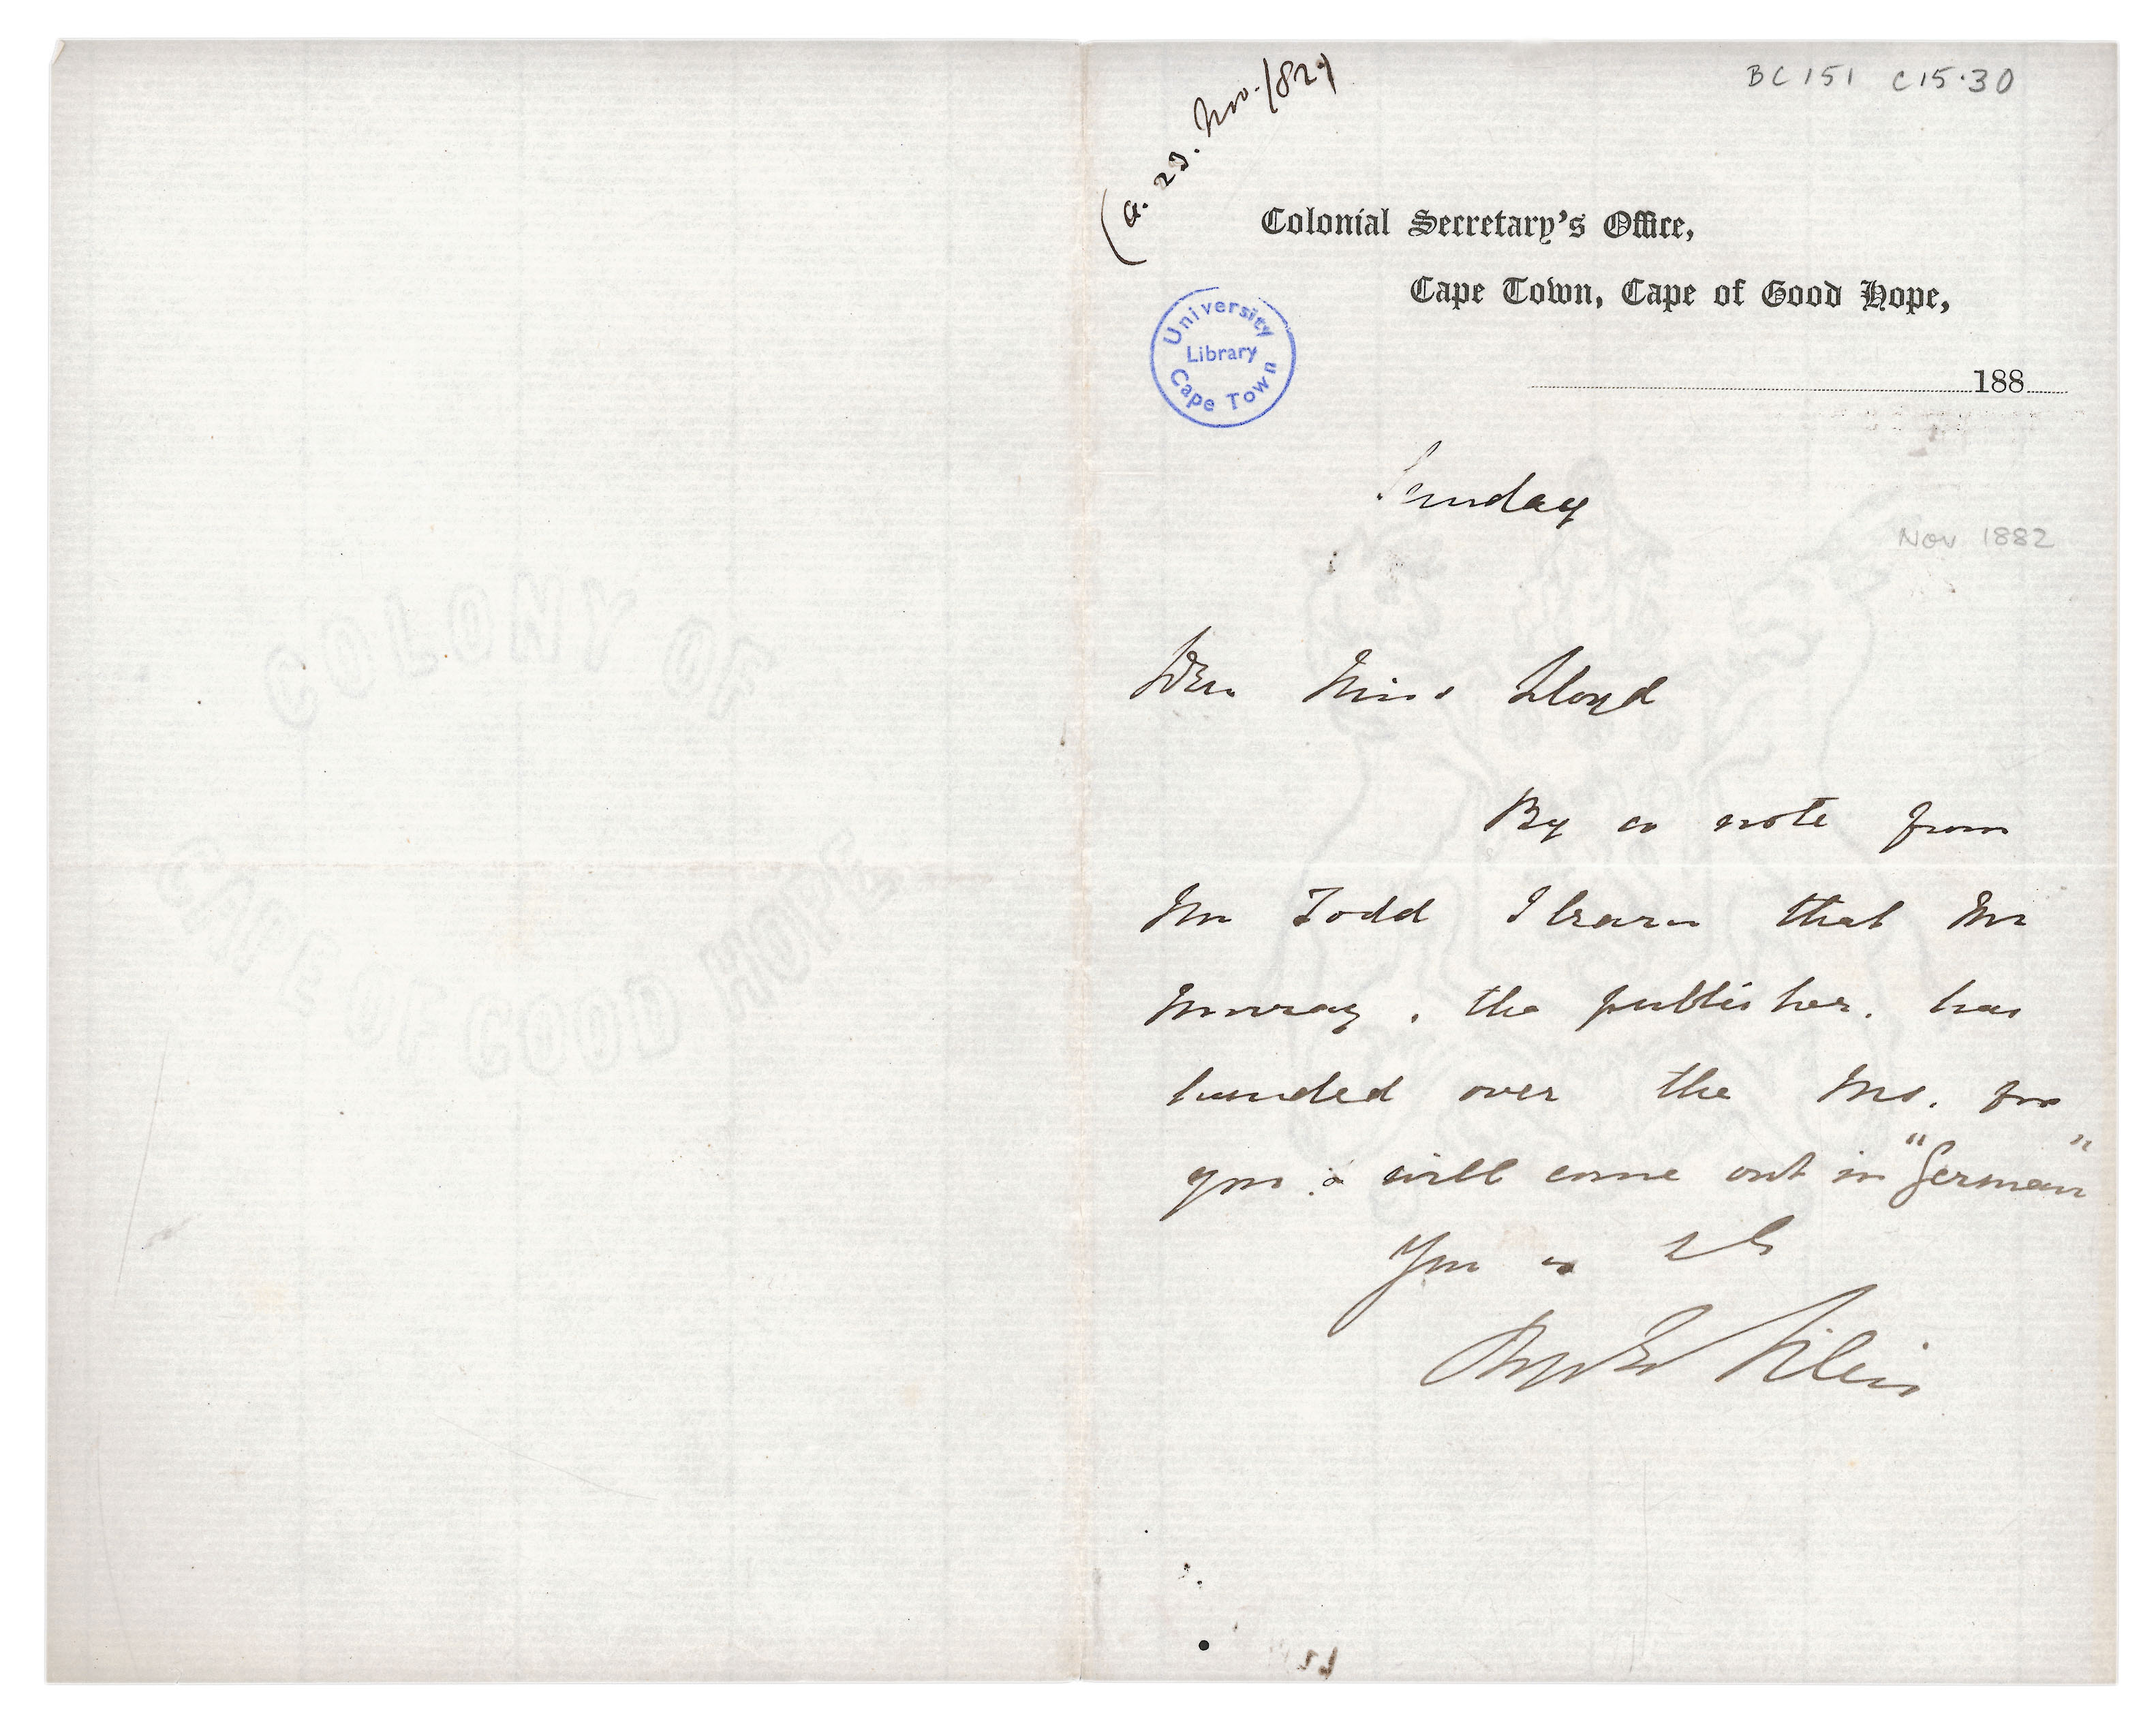 BC 151 C15.30
(a. 23. Nov./82)
Colonial Secretary's Office,
Cape Town, Cape of Good Hope,
188
University Library Cape Town
Sunday
Nov 1882
Dear Miss Lloyd
By a note from
Mr Todd I learn that Mr
Murray, the publisher, has
handed over the Ms. for
you & will come out in "German"
COLONY OF
CAPE OF GOOD HOPE